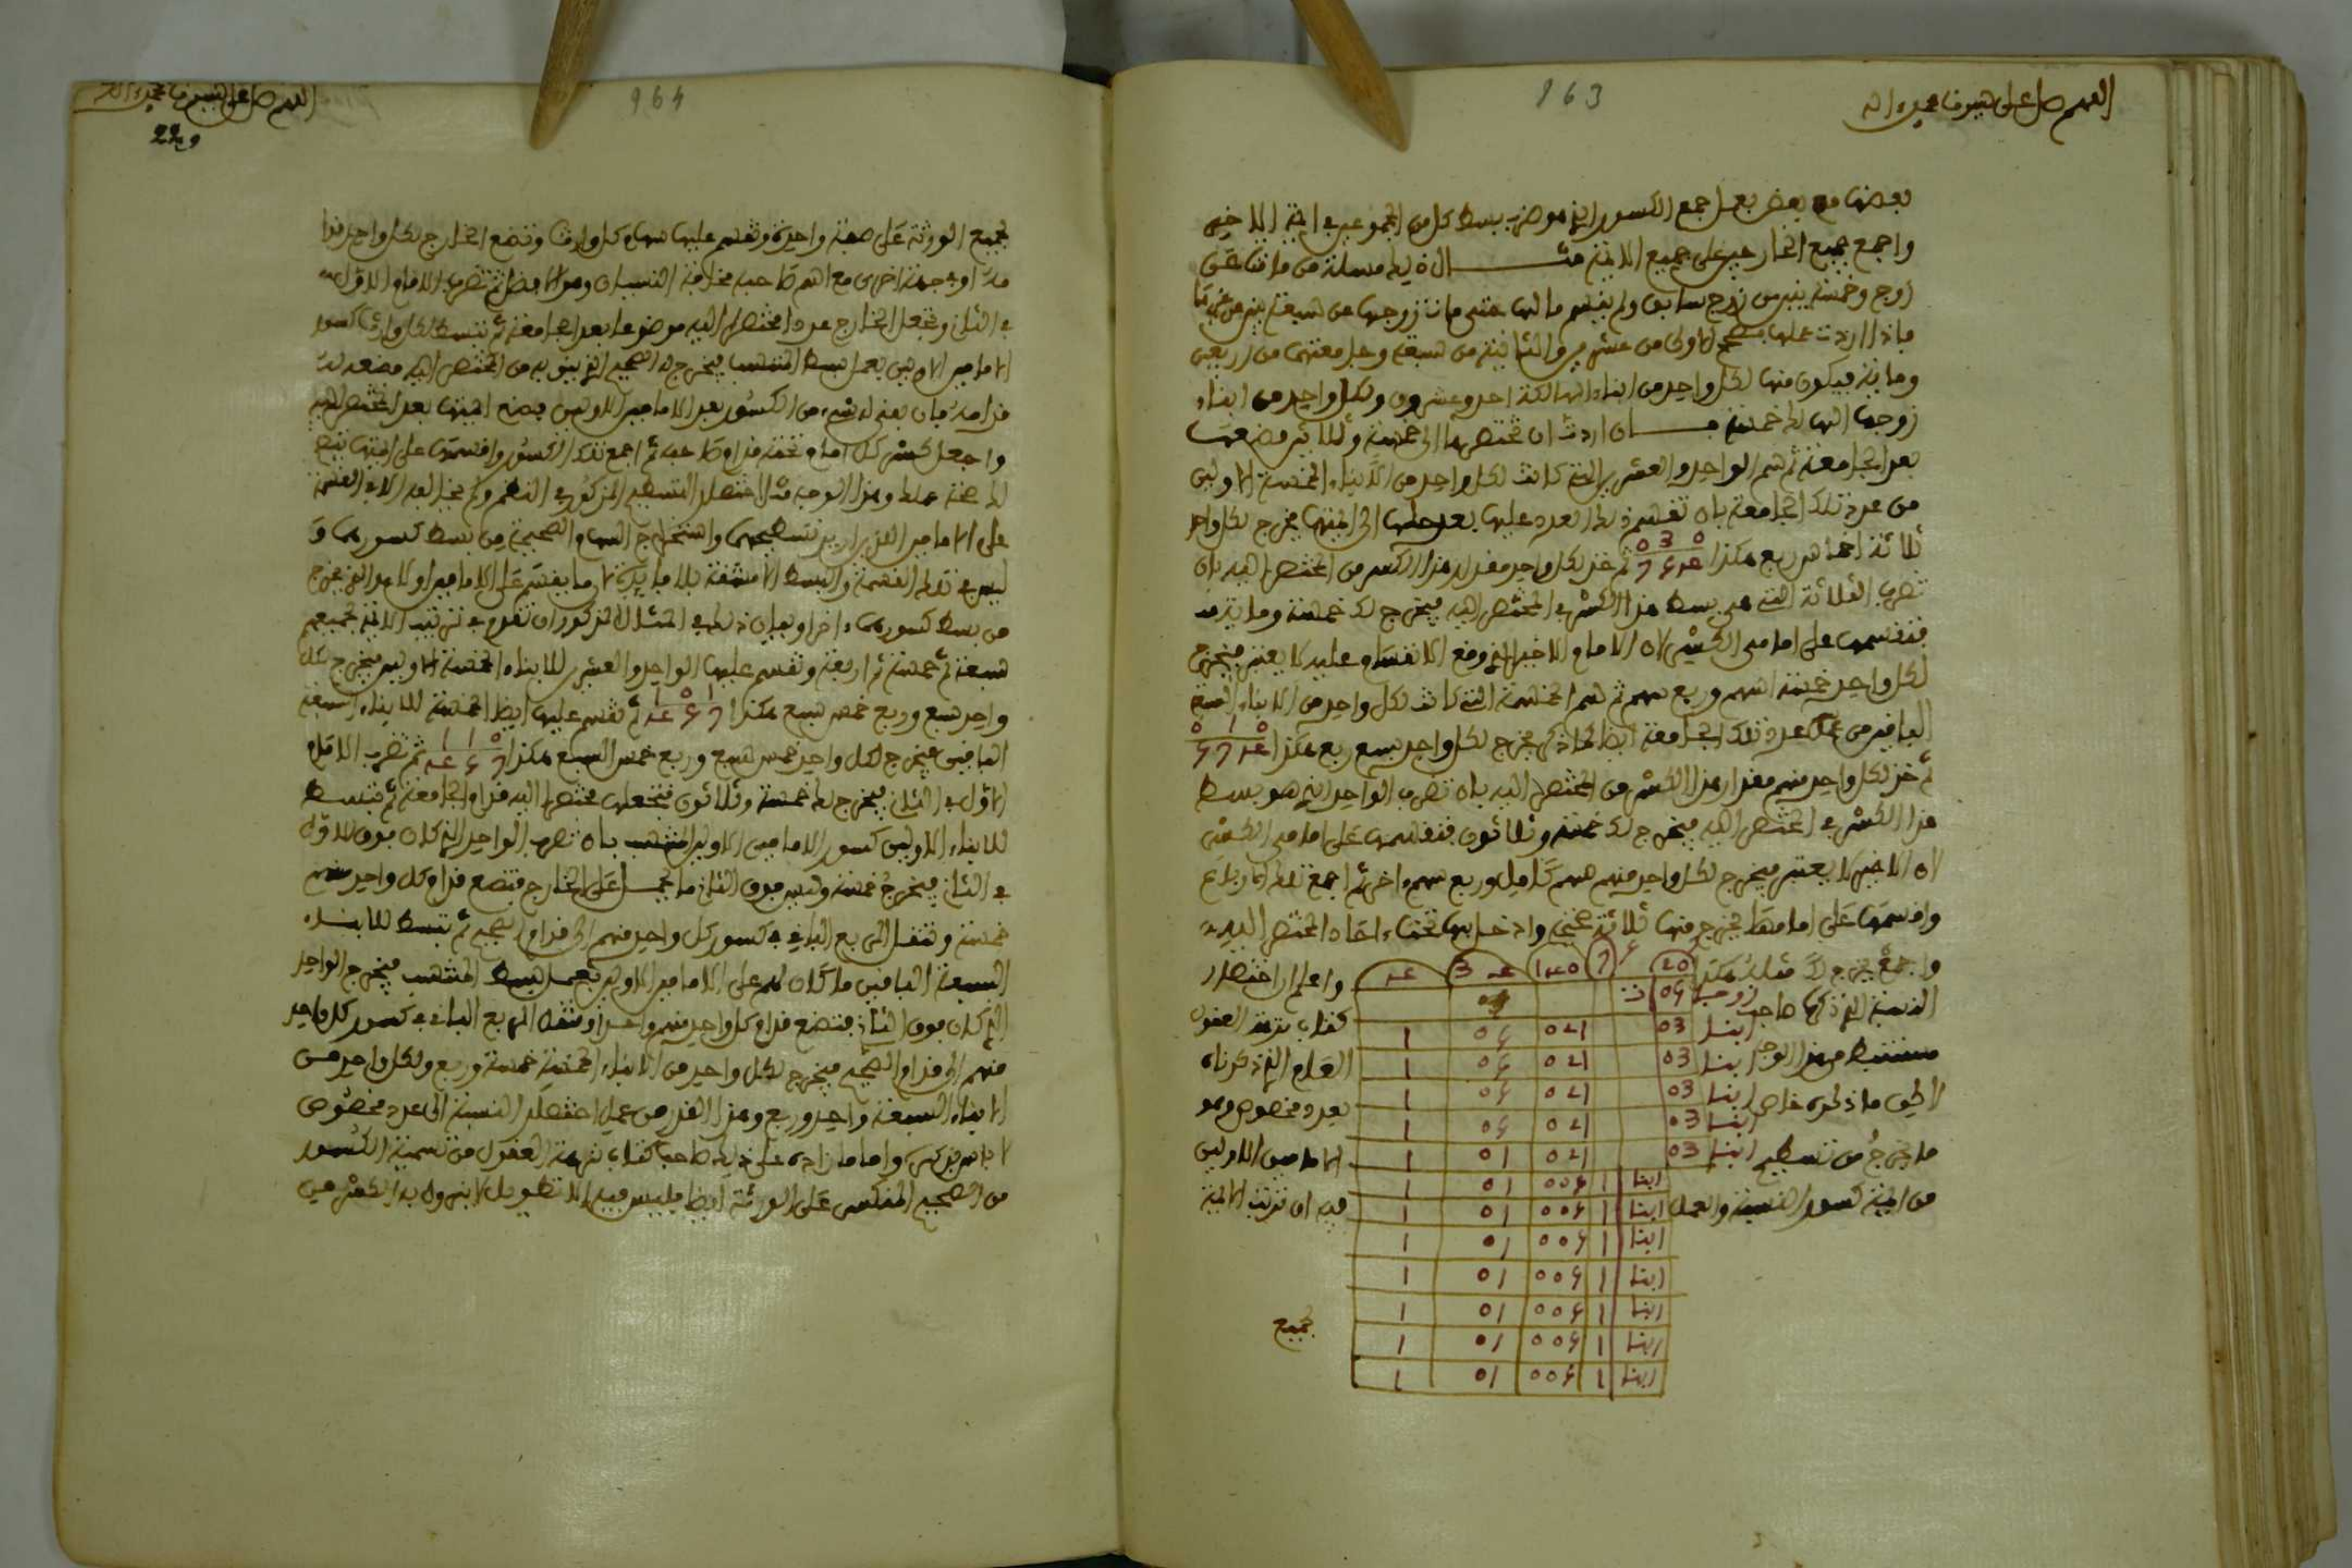 اللهم صل على سيدنا محمد واله
163
بعضها مع بعض بعمل جمع الكسور الذي هو ضرب بسط كل من المجموعين في ايمة الاخر
واجمع جميع الخارجين على جميع الايمة مثال ذلك مسلة من ماتت عن
زوج وخمسة بنين من زوج سابق ولم يقسم مالها حتى مات زوجها عن سبعة بنين من غيرها
فاذا اردت عملها الاولى من عشرين والثانية من سبعة وجامعتهما من اربعين
وماية فيكون منها لكل واحد من ابناء الهالكة احد وعشرون ولكل واحد من ابناء
زوجها الهالك خمسة فان اردت ان تختصرها الى خمسة وثلاثين فضعها
بعد الجامعة ثم سم الواحد والعشرين التي كانت لكل واحد من الابناء الخمسة الاولين
من عدد تلك الجامعة بان تقسم ذلك العدد عليها بعد حلها الى ايمتها يخرج لكل واحد
ثلاثة اخماس ربع هكذا
ثم خذ لكل واحد مقدار هذا الكسر من المختصر اليه بان
تضرب الثلاثة التي هي بسط هذا الكسر في المختصر اليه فيخرج لك خمسة وماية
فتقسمها على امامي الكسر لان الامام الاخير الذي وقع الانقسام عليه لا يعتبر فيخرج
لكل واحد خمسة اسهم وربع سهم ثم سم الخمسة التي كانت لكل واحد من الابناء السبعة
الباقين من عدد تلك الجامعة ايضا كما ذكر يخرج لكل واحد سبع ربع هكذا
ثم خذ لكل واحد منهم مقدار هذا الكسر من المختصر اليه بان تضرب الواحد الذي هو بسط
هذا الكسر في المختصر اليه فيخرج لك خمسة وثلاثون فتقسمها على امامي الكسر
لان الاخير لا يعتبر فيخرج لكل واحد منهم سهم كامل وربع سهم اخر ثم اجمع تلك الارباع
واقسمها على امامها يخرج منها ثلاثة صحيح وادخل بها تحت احاد المختصر اليه
واجمع يخرج لك مثله هكذا
واعلم ان اختصار
النسبة الذي ذكره صاحب
كتاب نزهة العقول
مستنبط من هذا الوجه
العام الذي ذكرناه
لاكن ما ذكره خاص
بعدد مخصوص وهو
ما يخرج من تسطيح
الامامين الاولين
من ايمة كسور النسبة والعمل
فيه ان ترتب الايمة
20 7 140 35 4
زوجا 05 ت
ابنا 03 021 05 1
ابنا 03 021 05 1
ابنا 03 021 05 1
ابنا 03 021 05 1
ابنا 03 021 01 1
ابنا 1 005 01 1
ابنا 1 005 01 1
ابنا 1 005 01 1
ابنا 1 005 01 1
ابنا 1 005 01 1
ابنا 1 005 01 1
ابنا 1 005 01 1
لجميع
اللهم صل على سيدنا محمد واله
164
لجميع الورثة على صفة واحدة وتقسم عليها سهام كل وارث وتضع الخارج لكل واحد قدا
مه او في جهة اخرى مع اسم صاحبه مخافة النسيان وهو الافضل ثم تضرب الامام الاول
في الثاني وتجعل الخارج عددا مختصرا اليه موضوعا بعد الجامعة ثم تبسط لكل وارث كسور
الامامين الاولين بعمل بسط المنتسب يخرج له الصحيح الذي ينوبه من المختصر اليه فضعه له
قدامه فان بقي له شيء من الكسور بعد الامامين الاولين فضع ايمتها بعد المختصر اليه
واجعل كسر كل امام تحته قدام صاحبه ثم اجمع تلك الكسور واقسمها على ايمتها تتبين
لك صحة عملك وهذا الوجه مثل اختصار التسطيح المذكور في النظم ولم يخالفه الا في القسمة
على الامامين الذين اريد تسطيحهما واستخراج السهام الصحيحة من بسط كسورهما و
ليس في تلك القسمة والبسط الا مشقة بلا فايدة لان ما يقسم على الامامين اولا هو الذي يخرج
من بسط كسورهما اخرا وبيان ذلك في المثال المذكور ان تقدم في ترتيب الايمة لجميعهم
سبعة ثم خمسة ثم اربعة وتقسم عليها الواحد والعشرين للابناء الخمسة الاولين فيخرج لكل
واحد سبع وربع خمس سبع هكذا
ثم تقسم عليها ايضا الخمسة للابناء السبعة
الباقين فيخرج لكل واحد خمس سبع وربع خمس السبع هكذا
ثم تضرب الامام
الاول في الثاني فيخرج لك خمسة وثلاثون فتجعلها مختصرا اليه قدام الجامعة ثم تبسط
للابناء الاولين كسور الامامين الاولين المنتسب بان تضرب الواحد الذي كان فوق الاول
في الثاني فيخرج خمسة وليس فوق الثاني ما يحمل على الخارج فتضع قدام كل واحد منهم
خمسة وتنقل الربع الباقي في كسور كل واحد منهم الى قدام الصحيح ثم تبسط للابناء
السبعة الباقين ما كان لهم على الامامين الاولين بعمل بسط المنتسب فيخرج الواحد
الذي كان فوق الثاني فتضع قدام كل واحد منهم واحدا وتنقل الربع الباقي في كسور كل واحد
منهم الى قدام الصحيح فيخرج لكل واحد من الابناء الخمسة خمسة وربع ولكل واحد من
الابناء السبعة واحد وربع وهذا القدر من عمل اختصار النسبة الى عدد مخصوص
لا باس بذكره واما ما زاده على ذلك صاحب كتاب نزهة العقول من تسمية الكسور
من الصحيح المنكسر على الورثة ايضا فليس فيه الا تطويل لا يزول به الكسر عن